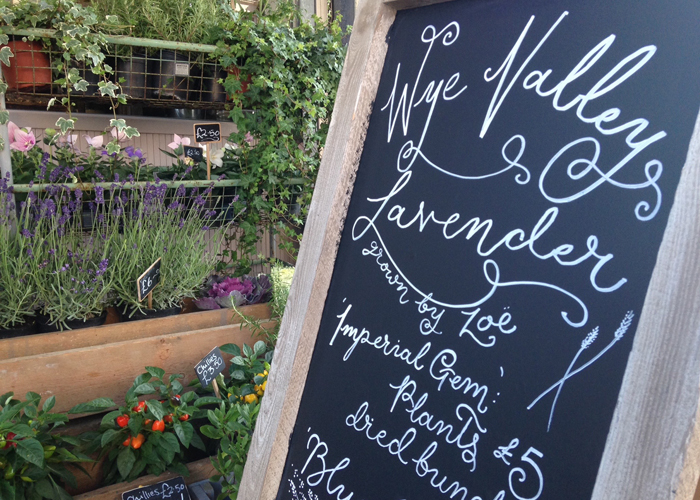 Wye Valley
Lavender
grown by Zoë
'Imperial Gem':
Plants £5
dred bunch
£2.50
£2.50
£6
Chillies
£3.50
Chillies